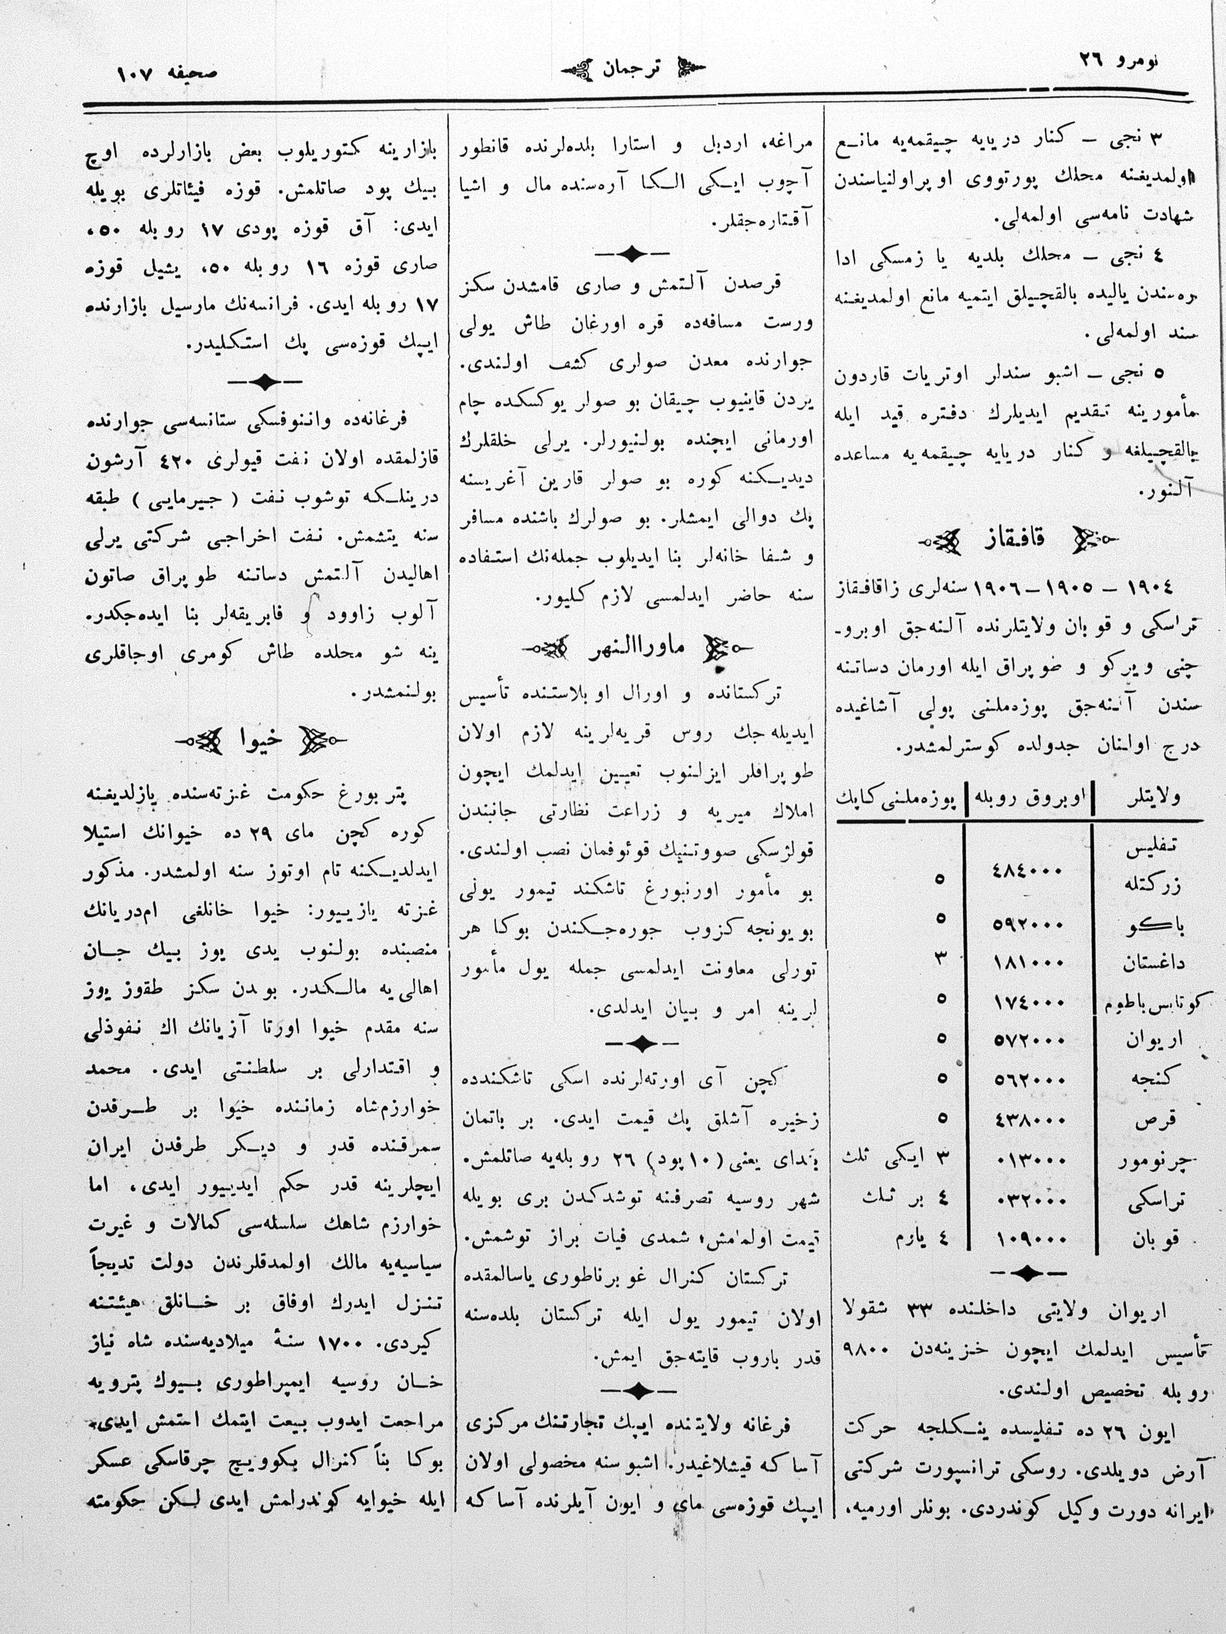 نومرو ٢٦
ترجمان
صحيفه ١٠٧
٣ نجى ــ كنار دريايه چيقمه‌يه مانـع
اولمديغـنه محلك پورتووى اوپراولنياسندن
شهادت نامه‌سى اولمه‌لى.
٤ نجى ــ محلك بلديه يا زمسكى ادا
ره‌سندن ياليده بالقچيلق ايتميه مانع اولمديغـنه
سند اولمه‌لى.
٥ نجى ــ اشبو سندلر اوتريات قاردون
مأمورينه تـقديم ايديلرك دفـتره قيد ايله
بالقچيـلغه و كنار دريايه چيقمه‌يه مساعده
آلـنور.
قافـقاز
١٩٠٤ ــ ١٩٠٥ــ١٩٠٦ سنه‌لرى زاقافـقاز
تراسكى و قوبان ولايتلرنده آلـنه‌جق اوبروـ
چنى ويركو و طوپراق ايله اورمان دساتـنه
سندن آلـنه‌جق پوزه‌ملـنى پولى آشاغيده
درج اولـنان جدولده كوسترلمشدر.
ولايتلر | اوبروق روبله | پوزه‌ملـنى كاپك
تـفليس
زركتله ٤٨٤٠٠٠ ٥
باكو ٥٩٢٠٠٠ ٥
داغستان ١٨١٠٠٠ ٣
كوتايس باطوم ١٧٤٠٠٠ ٥
اريوان ٥٧٢٠٠٠ ٥
كنجه ٥٦٢٠٠٠ ٥
قرص ٤٣٨٠٠٠ ٥
چرنومور ٠١٣٠٠٠ ٣ ايـكى ثلث
تراسكى ٠٣٢٠٠٠ ٤ بر ثـلث
قوبان ١٠٩٠٠٠ ٤ يارم
اريوان ولايتى داخلـنده ٣٣ شقولا
تأسيس ايدلمك ايچون خـزينه‌دن ٩٨٠٠
روبله تخصيص اولـندى.
ايون ٢٦ ده تـفليسده ينـكـلجه حركت
آرض دويلدى. روسكى ترانسپورت شركتى
ايرانه دورت وكيل كوندردى. بونلر اورميه،
مراغه، اردبل و استارا بلده‌لرنده قانطور
آچوب ايـكى الـكا آره‌سنده مال و اشيا
آقـتاره‌جقلر.
قرصدن آلـتمش و صارى قامشدن سكز
ورست مسافه‌ده قره اورغان طاش يولى
جوارنده معدن صولرى كشف اولندى.
يردن قاينيوب چيقان بو صولر يوكسكده چام
اورمانى ايچنده بولـنيورلر. يرلى خلقلرك
ديديـكنه كوره بو صولر قارين آغريسنه
پك دوالى ايمشلر. بو صولرك باشنده مسافر
و شـفا خانه‌لر بنا ايديلوب جمله‌نك استـفاده
سنه حاضر ايدلمسى لازم كـليور.
ماوراالـنهر
تركستانده و اورال اوبلاستـنده تأسيس
ايديله‌جك روس قريه‌لرينه لازم اولان
طوپرافلر ايزلـنوب تعيـين ايدلمك ايچون
املاك ميريه و زراعت نظارتى جانبندن
قولژسكى صووتـنيك قوئوفمان نصب اولـندى.
بو مأمور اورنبورغ تاشكند تيمور يولى
بويونجه كـزوب جوره‌جـكندن بوكا هر
تورلى معاونت ايدلمسى جمله يول مأمور
لرينه امر و بـيان ايدلدى.
كچن آى اورته‌لرنده اسكى تاشكندده
زخيره آشلق پك قيمت ايدى. بر باتمان
بغداى يعنى (١٠ پود) ٢٦ روبله‌يه صاتلمش.
شهر روسيه تصرفـنه توشدكـدن برى بويله
قيمت اولمامش؛ شمدى فيات براز توشمش.
تركستان كنرال غوبرناطورى ياسالمقده
اولان تيمور يول ايله تركستان بلده‌سنه
قدر باروب قايته‌جق ايمش.
فرغانه ولايتـنده ايپك تجارتنك مركزى
آساكه قيشلاغيدر. اشبو سنه محصولى اولان
ايپك قوزه‌سى ماى و ايون آيلرنده آساكه
بازارينه كـتوريلوب بعض بازارلرده اوچ
بـيك پود صاتلمش. قوزه فيئاتلرى بويله
ايدى: آق قوزه پودى ١٧ روبله ٥٠،
صارى قوزه ١٦ روبله ٥٠، يشيل قوزه
١٧ روبله ايدى. فرانسه‌نك مارسيل بازارنده
ايپك قوزه‌سى پك استـكـليدر.
فرغانه‌ده وانـنوفسكى ستانسه‌سى جوارنده
قازلمقده اولان نـفت قيولرى ٤٢٠ آرشون
درينلـكه توشوب نـفت (جـيرمايى) طبقه
سنه يتشمش. نـفت اخراجى شركتى يرلى
اهاليدن آلـتمش دساتـنه طوپراق صاتون
آلوب زاوود و فابريقه‌لر بنا ايده‌جكدر.
ينه شو محلده طاش كومرى اوجاقلرى
بولـنمشدر.
خيوا
پتربورغ حكومت غـزته‌سنده يازلديغـنه
كوره كچن ماى ٢٩ ده خيوانك استيلا
ايدلديـكـنه تام اوتوز سنه اولمشدر. مذكور
غـزته يازيـيور: خيوا خانلغى ام‌دريانك
منصبنده بولـنوب يدى يوز بـيك جــان
اهالى‌يه مالـكدر. بوندن سكز طقوز يوز
سنه مقدم خيوا اورتا آزيانك اك نـفوذلى
و اقـتدارلى بر سلطـنتى ايدى. محمد
خوارزمشاه زمانـنده خيوا بر طــرفدن
سمرقـنده قدر و ديـكر طرفدن ايران
ايچلرينه قدر حكم ايديـيور ايدى، اما
خوارزم شاهك سلسله‌سى كمالات و غيرت
سياسيه‌يه مالك اولمدقلرندن دولت تديجاً
تـنـزل ايدرك اوفاق بر خــانلق هيئتـنه
كيردى. ١٧٠٠ سنۀ ميلاديه‌سنده شاه نياز
خــان روسيه ايمپراطورى بـيوك پترويه
مراجعت ايدوب بيعت ايتمك استمش ايدى.
بوكا بنأ كنرال بكوويـچ چرقاسكى عسكر
ايله خيوايه كوندرلمش ايدى لـكن حكومته